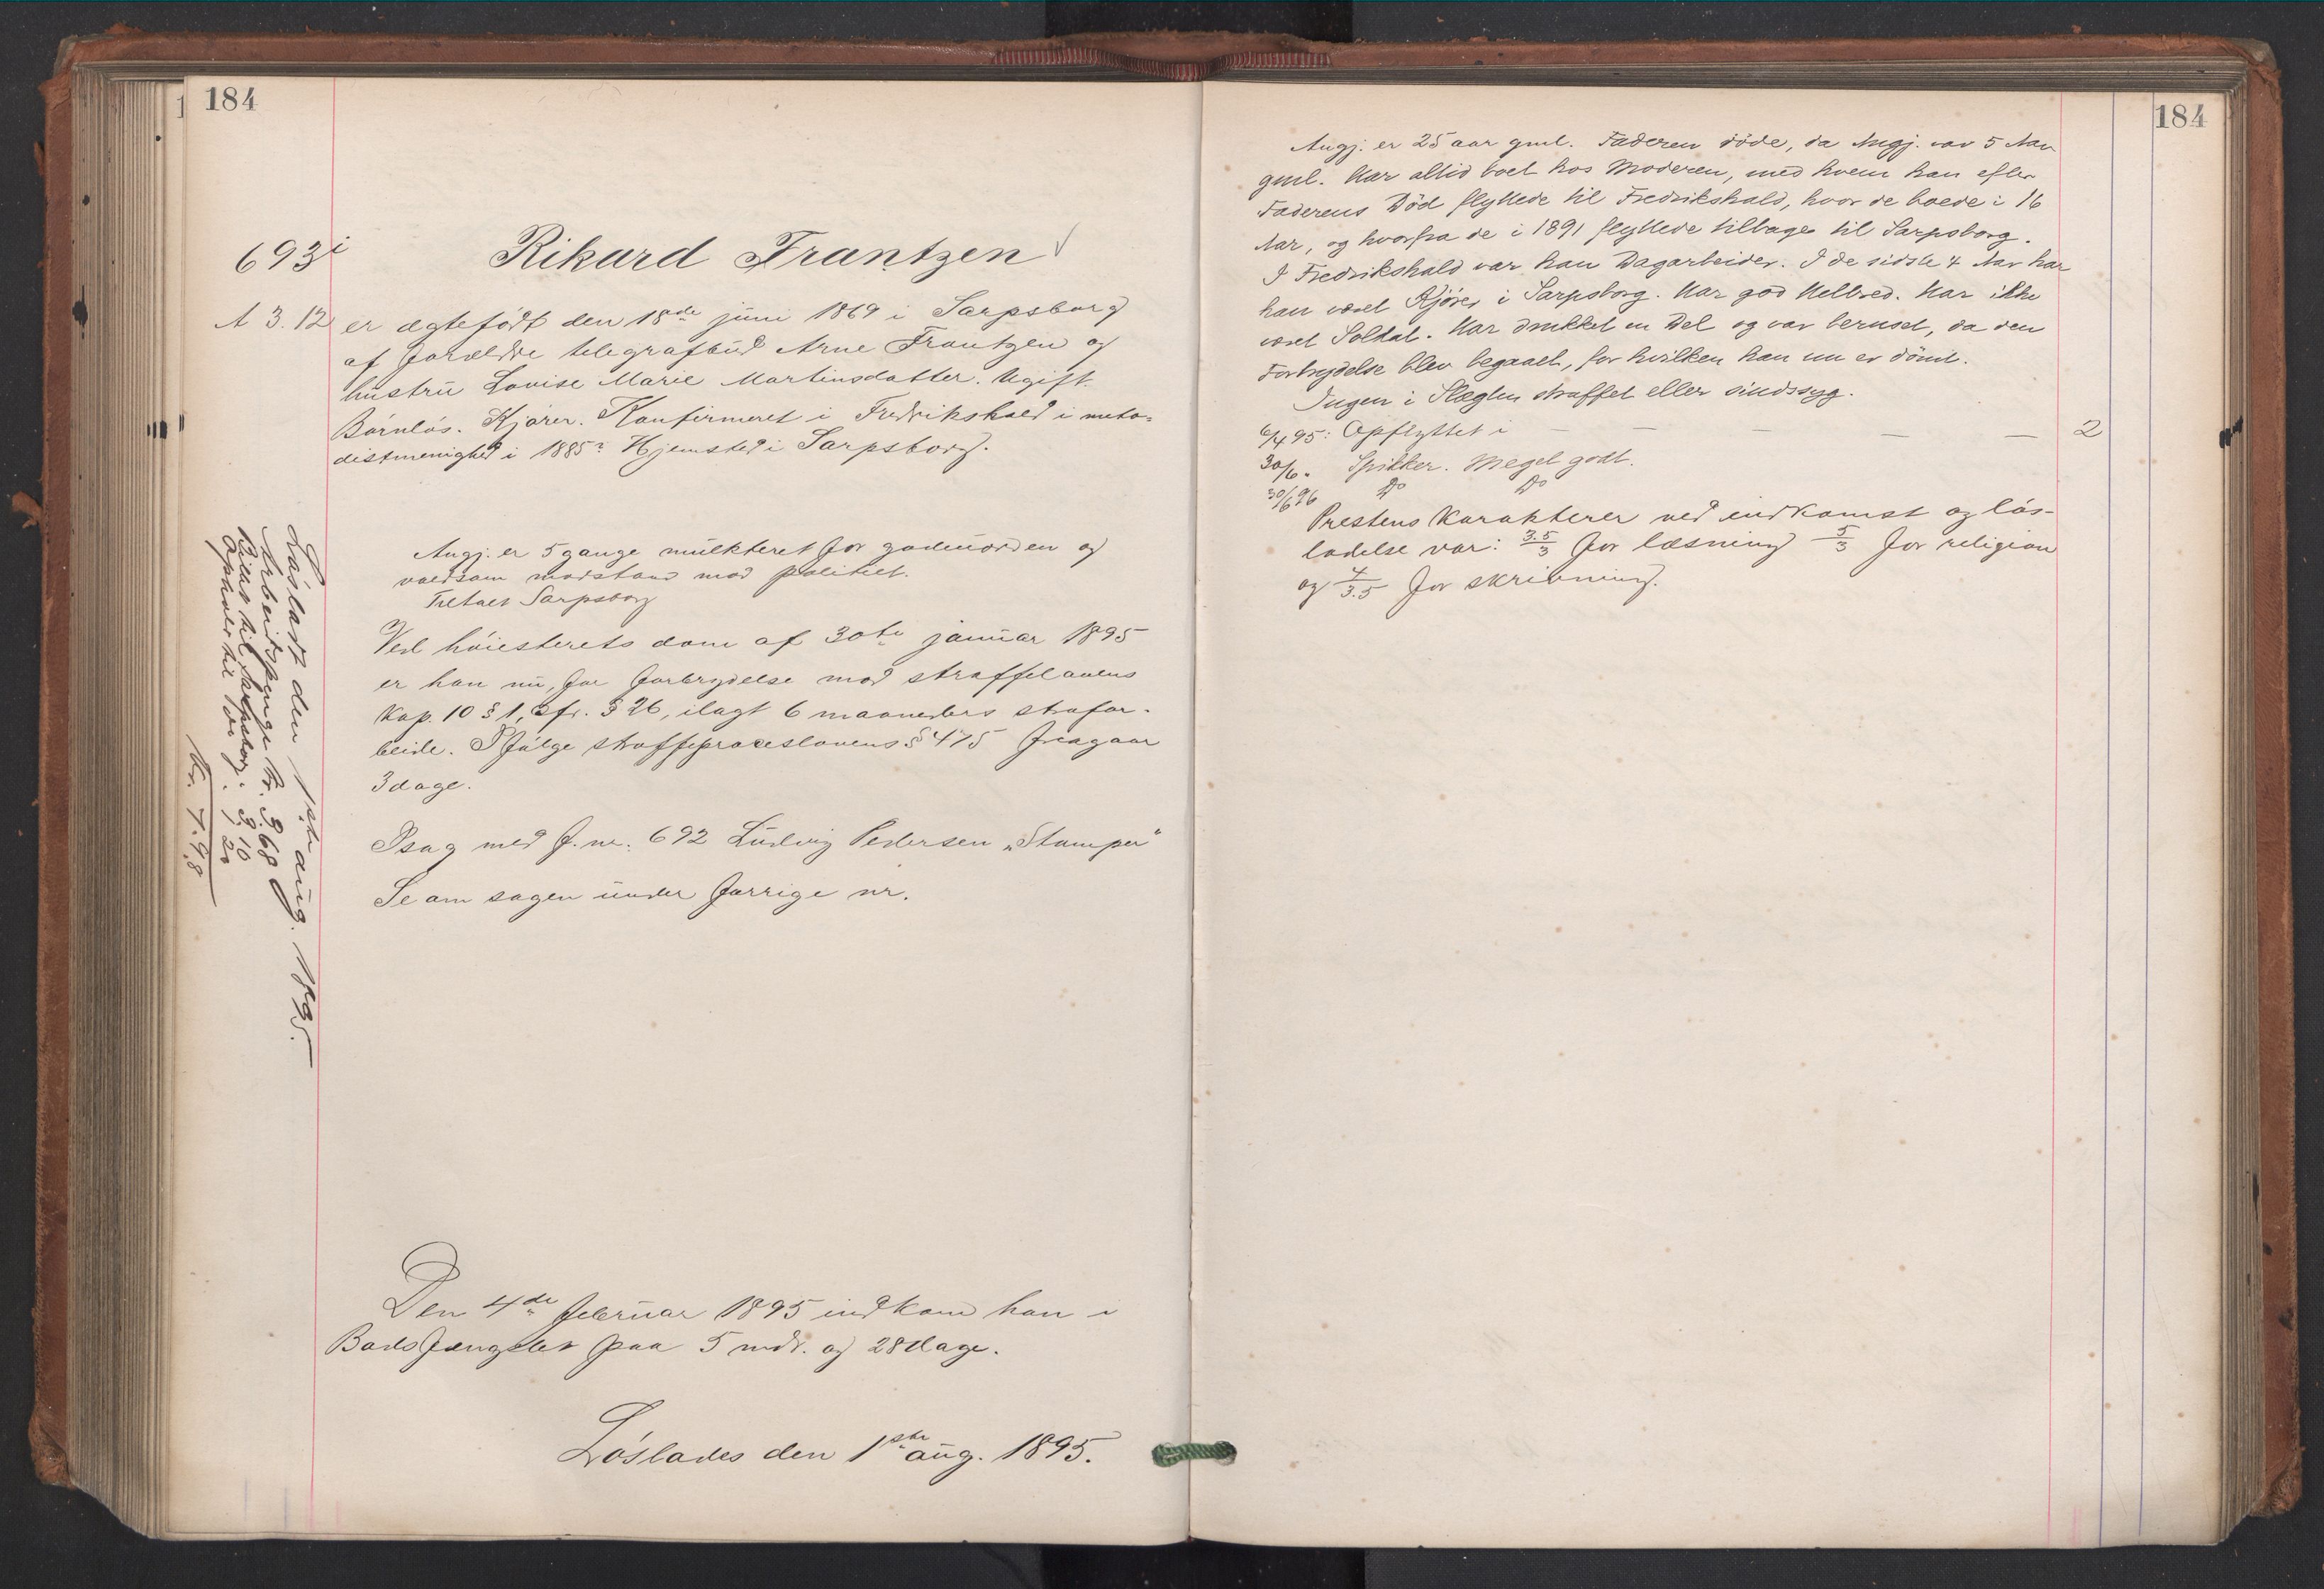 184
693i
Rikard Frantzen
A 3.12 er ægtefödt den 18de juni 1869 i Sarpsborg
af forældre telegrafbud Arne Frantzen og
hustru Lovise Marie Martinsdatter. Ugift.
Börnlös. Kjörer. Konfirmeret i Fredrikshald i meto-
distmenighed i 1885? Hjemsted i Sarpsborg.
Angj. er 5 gange mulkteret for gadeuorden og
voldsom modstand mod politiet.
Tiltalt Sarpsborg
Ved höiesterets dom af 30te januar 1895
er han nu, for forbrydelse mod straffelovens
kap. 10 § 1, cfr. § 26, ilagt 6 maaneders strafar-
beide. I fölge straffeproceslovens § 475 fragaar
3 dage.
I sag med f. nr. 692 Ludvig Pedersen „Stamper"
Se om sagen under forrige nr.
Den 4de februar 1895 indkom han i
Bodsfængslet paa 5 mdr. og 28 dage.
Löslades den 1ste aug. 1895.
Lösladt den 1ste aug. 1895.
Arbeidspenge Kr. 3.68
Billet til Sarpsborg: 3.10
Ophold til Do. 1.20
Kr. 7.98
184
Angj. er 25 aar gml. Faderen döde, da Angj. var 5 Aar
gml. Har altid boet hos Moderen, med hvem han efter
Faderens Död flyttede til Fredrikshald, hvor de boede i 16
Aar, og hvorfra de i 1891 flyttede tilbage til Sarpsborg.
I Fredrikshald var han Dagarbeider. I de sidste 4 Aar har
han været Kjörer i Sarpsborg. Har god Helbred. Har ikke
været Soldat. Har drukket en Del og var beruset, da den
Forbrydelse blev begaaet, for hvilken han nu er dömt.
Ingen i Slægten straffet eller sindssyg.
6/4 95: Opflyttet i — — — — — 2
30/6 " Spikker. Meget godt.
30/6 96 Do Do
Prestens karakterer ved indkomst og lös-
ladelse var: 3.5/3 for læsning 5/3 for religion
og 4/3.5 for skrivning.